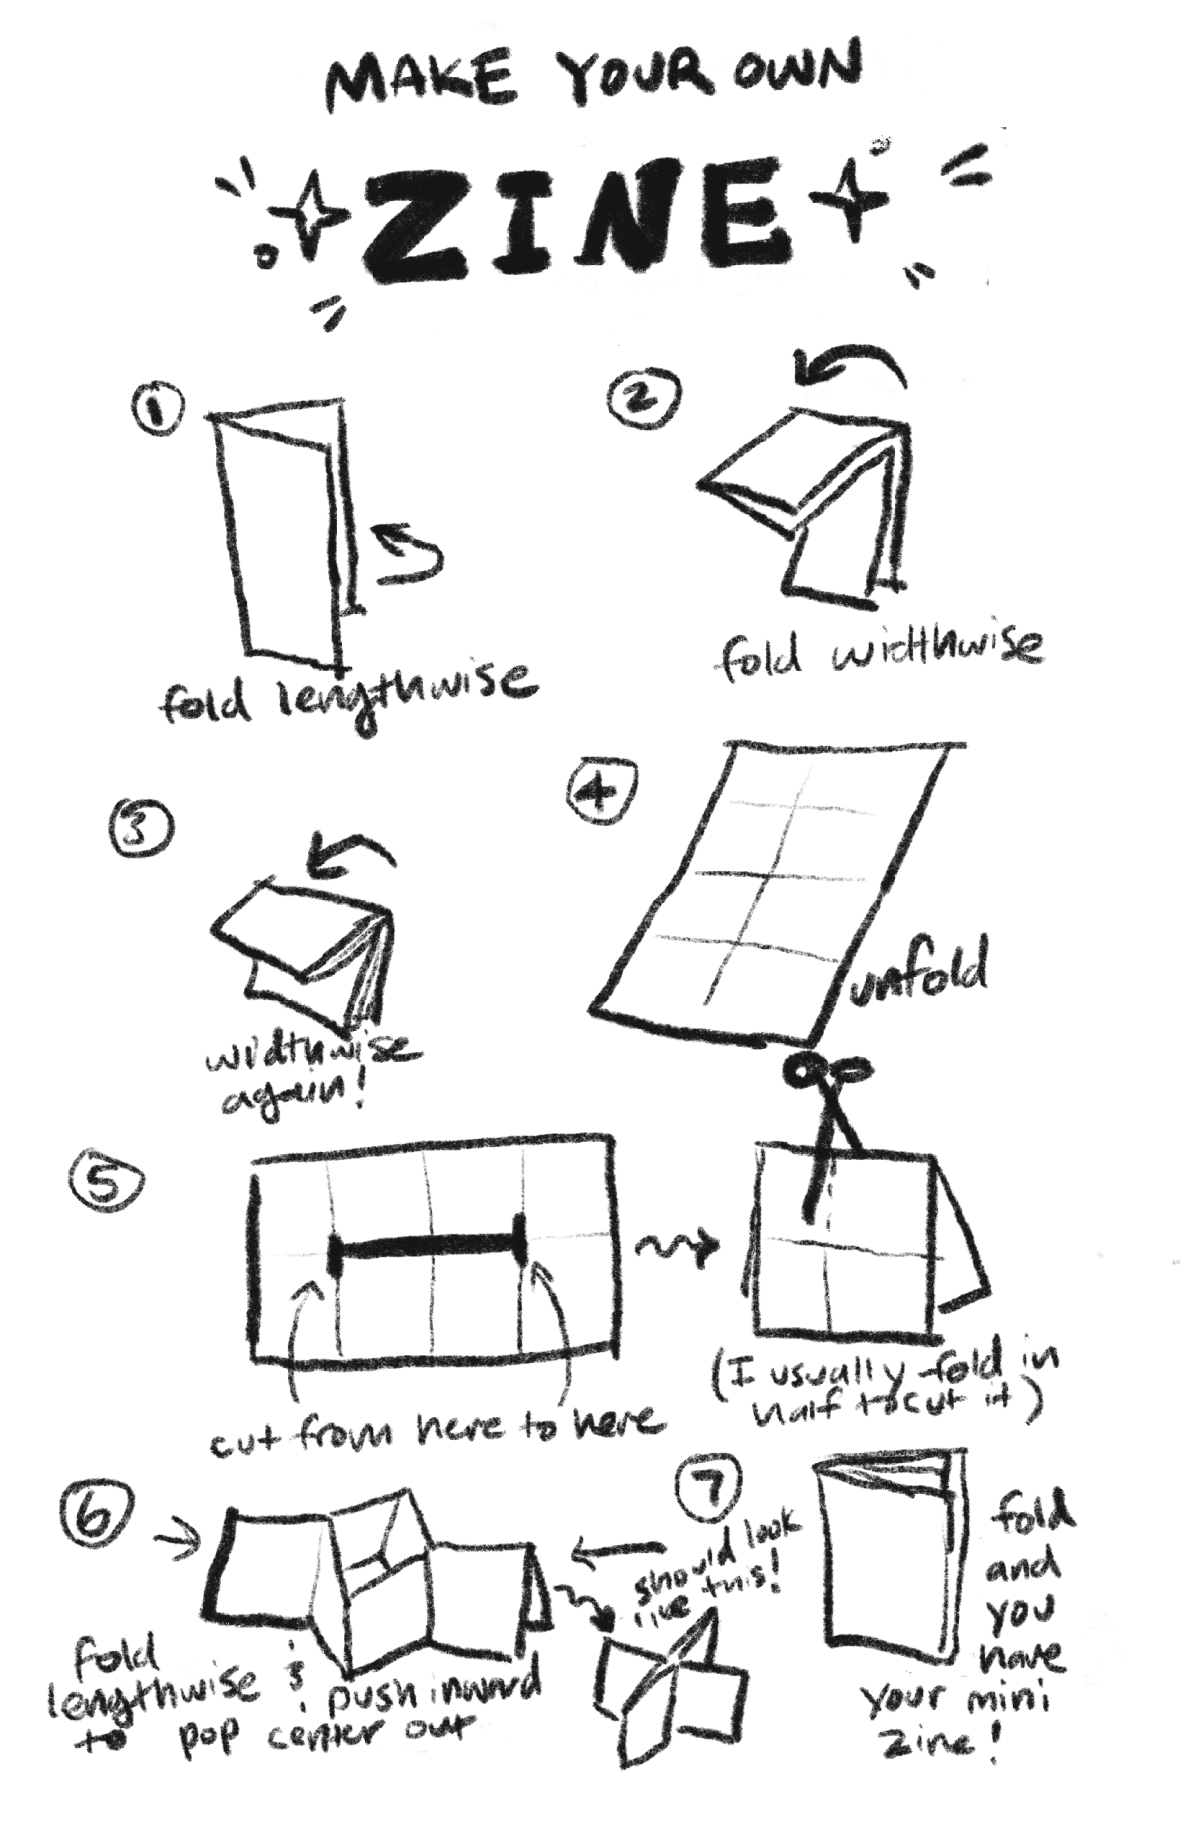 MAKE YOUR OWN
ZINE
1
fold lengthwise
2
fold widthwise
3
widthwise
again!
4
unfold
5
cut from here to here
(I usually fold in
half to cut it)
6
fold
lengthwise & push inward
to pop center out
should look
like this!
7
fold
and
you
have
your mini
zine!